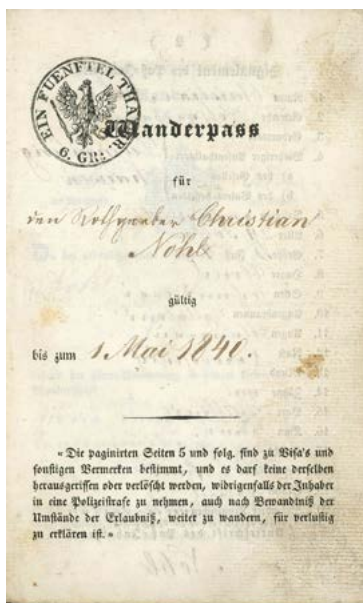 EIN FUENFTEL THALER
6. GR:
Wanderpass
für
den Rothgerber Christian
Nohl
gültig
bis zum 1 Mai 1840.
«Die paginirten Seiten 5 und folg. sind zu Visa's und
sonstigen Vermerken bestimmt, und es darf keine derselben
herausgerissen oder verlöscht werden, widrigenfalls der Inhaber
in eine Polizeistrafe zu nehmen, auch nach Bewandtniß der
Umstände der Erlaubniß, weiter zu wandern, für verlustig
zu erklären ist.»